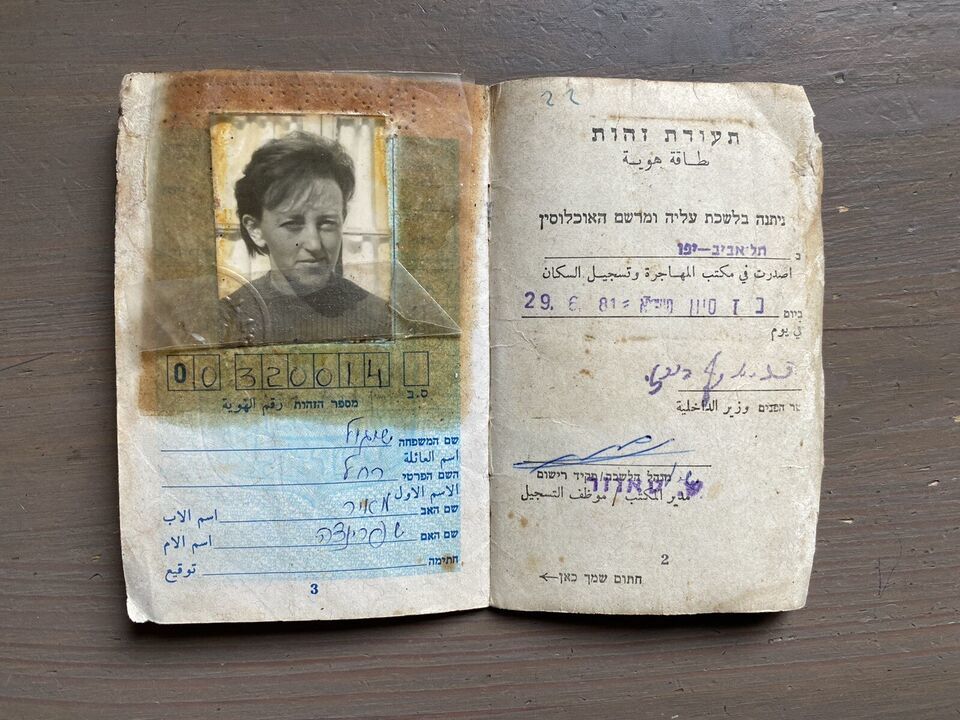 תעודת זהות
بطاقة هوية
ניתנה בלשכת עליה ומרשם האוכלוסין
ב תל־אביב–יפו
اصدرت في مكتب المهاجرة وتسجيل السكان
ביום כ ז סיון תשמ"א = 29. 6. 81
في يوم
שר הפנים وزير الداخلية
מנהל הלשכה/פקיד רישום
مدير المكتب/موظف التسجيل
2
חתום שמך כאן←
0 0 3 2 0 0 1 4
ס.ב
מספר הזהות رقم الهوية
שם המשפחה
اسم العائلة
השם הפרטי רחל
الاسم الاول
שם האב מאיר اسم الاب
שם האם שפרינצה اسم الام
חתימה توقيع
3